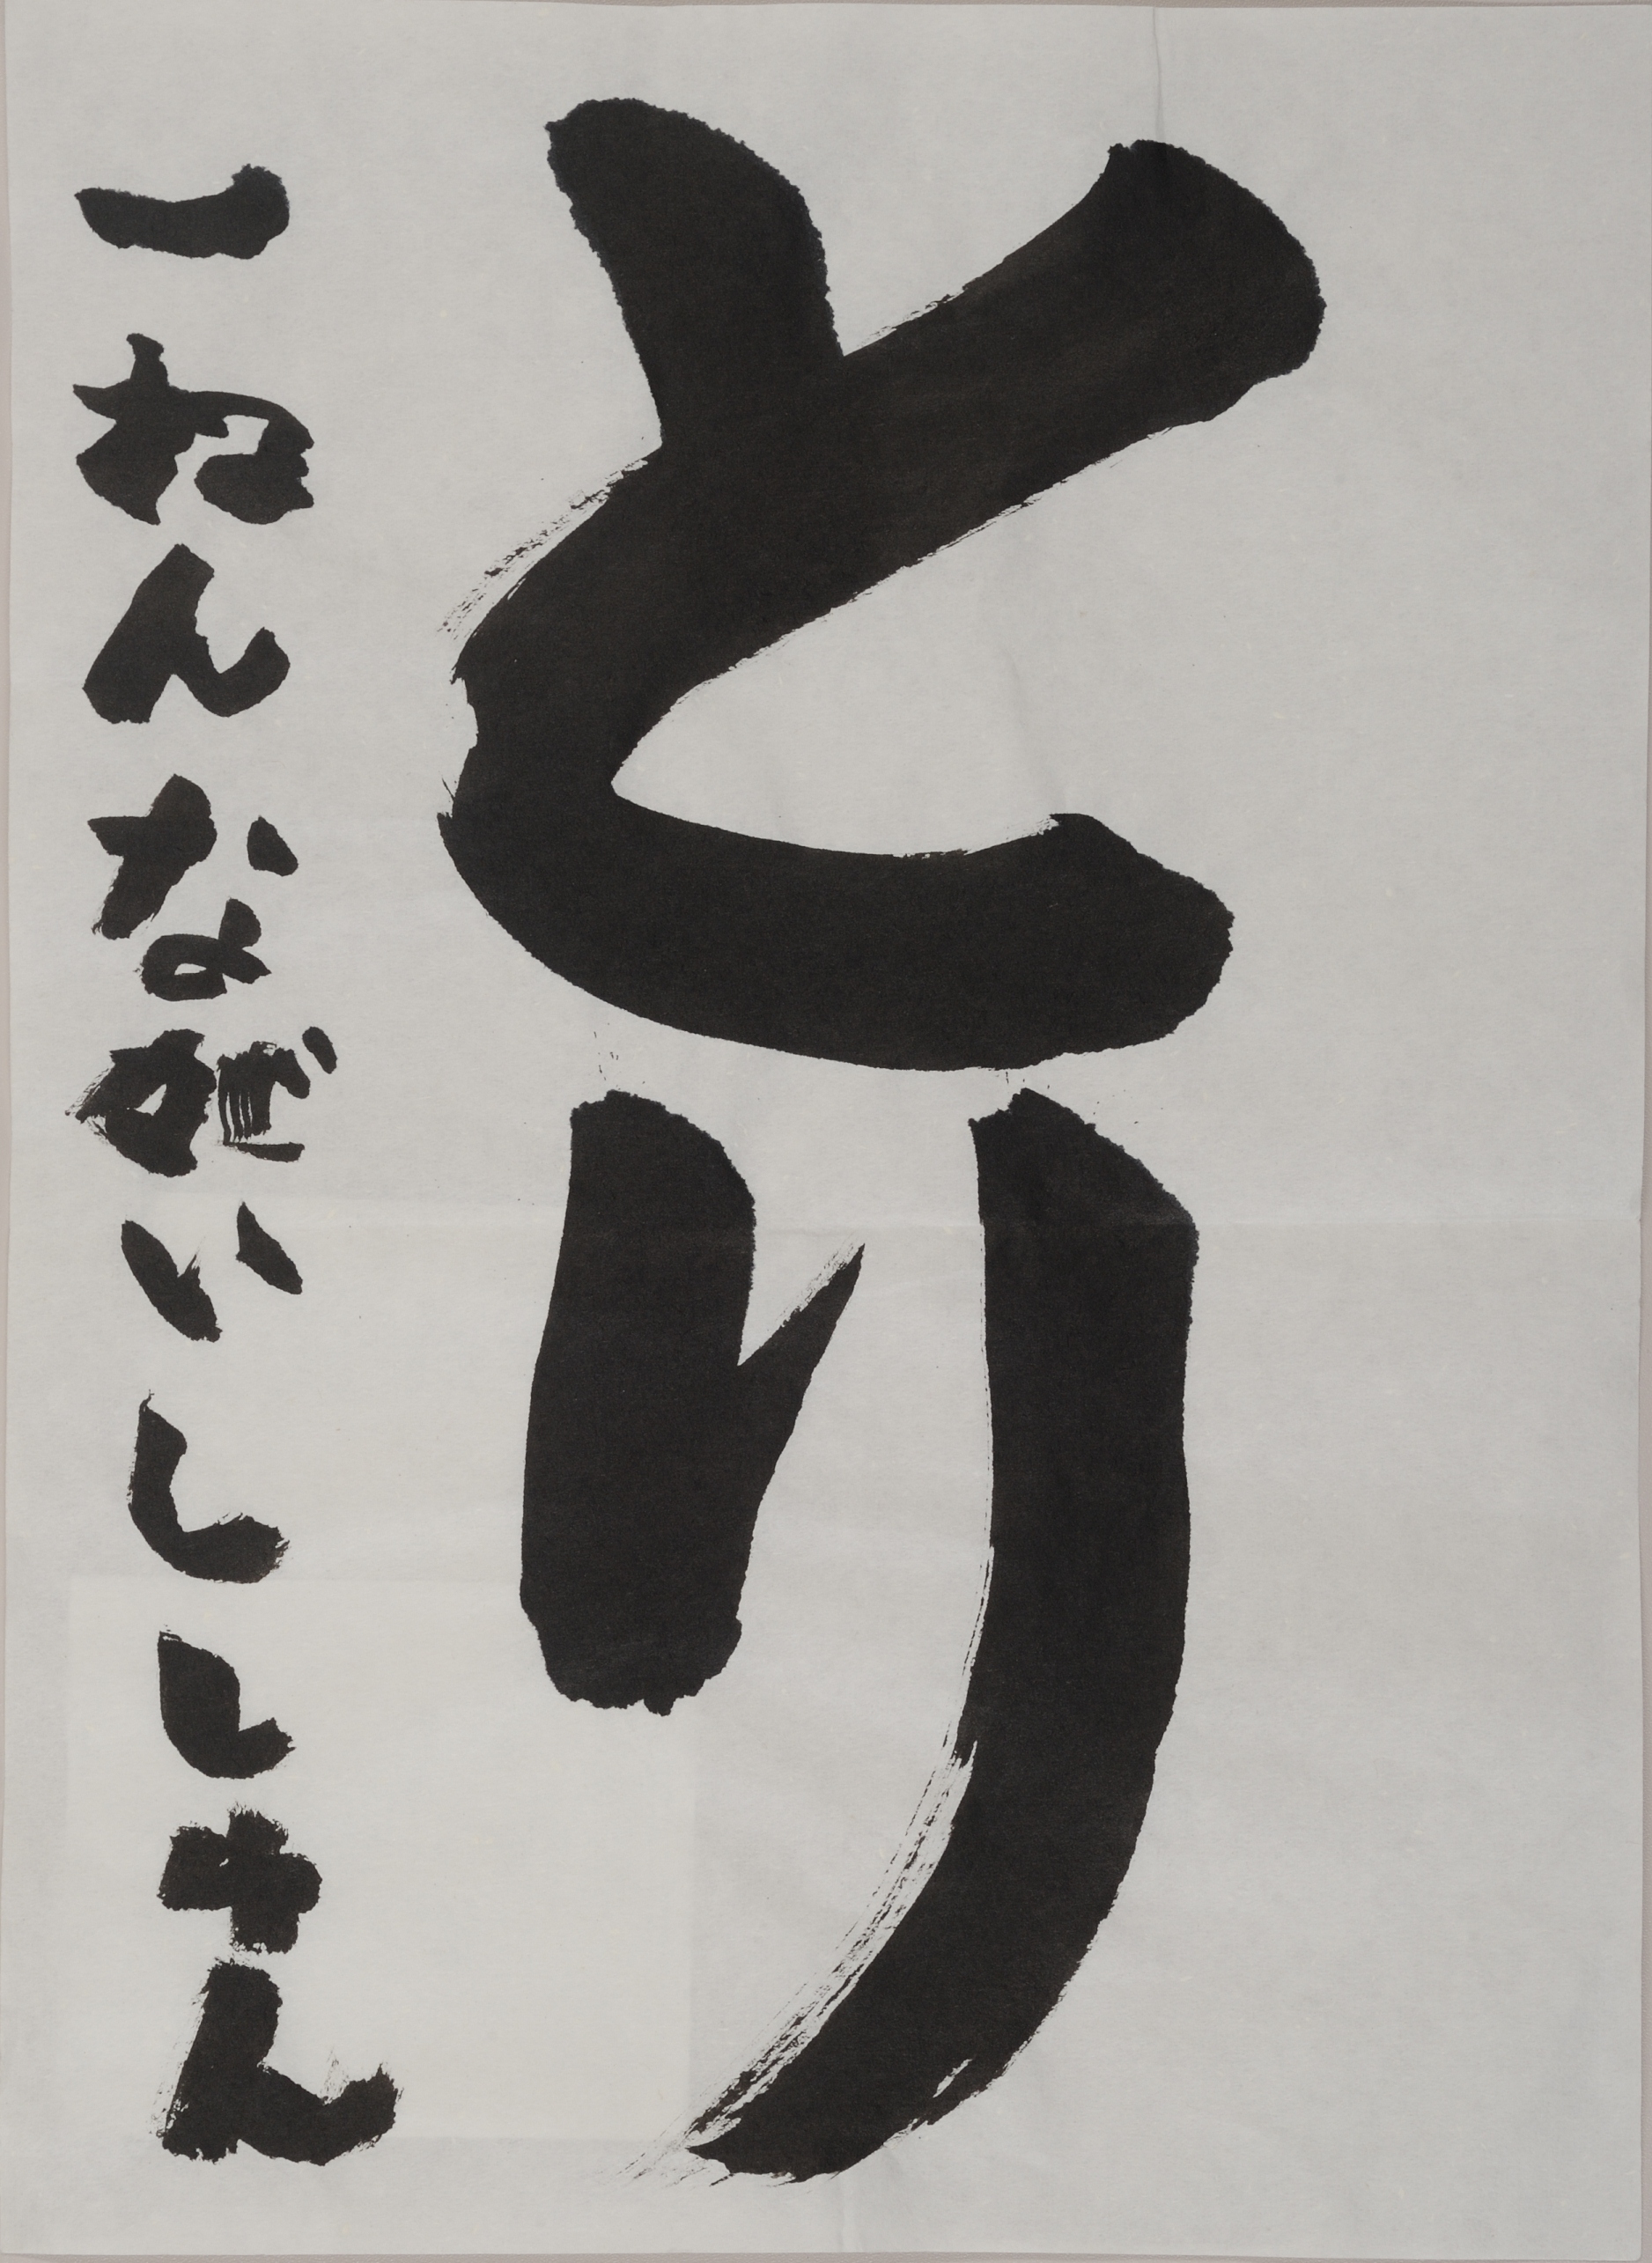 とり
一ねんながいししゅん